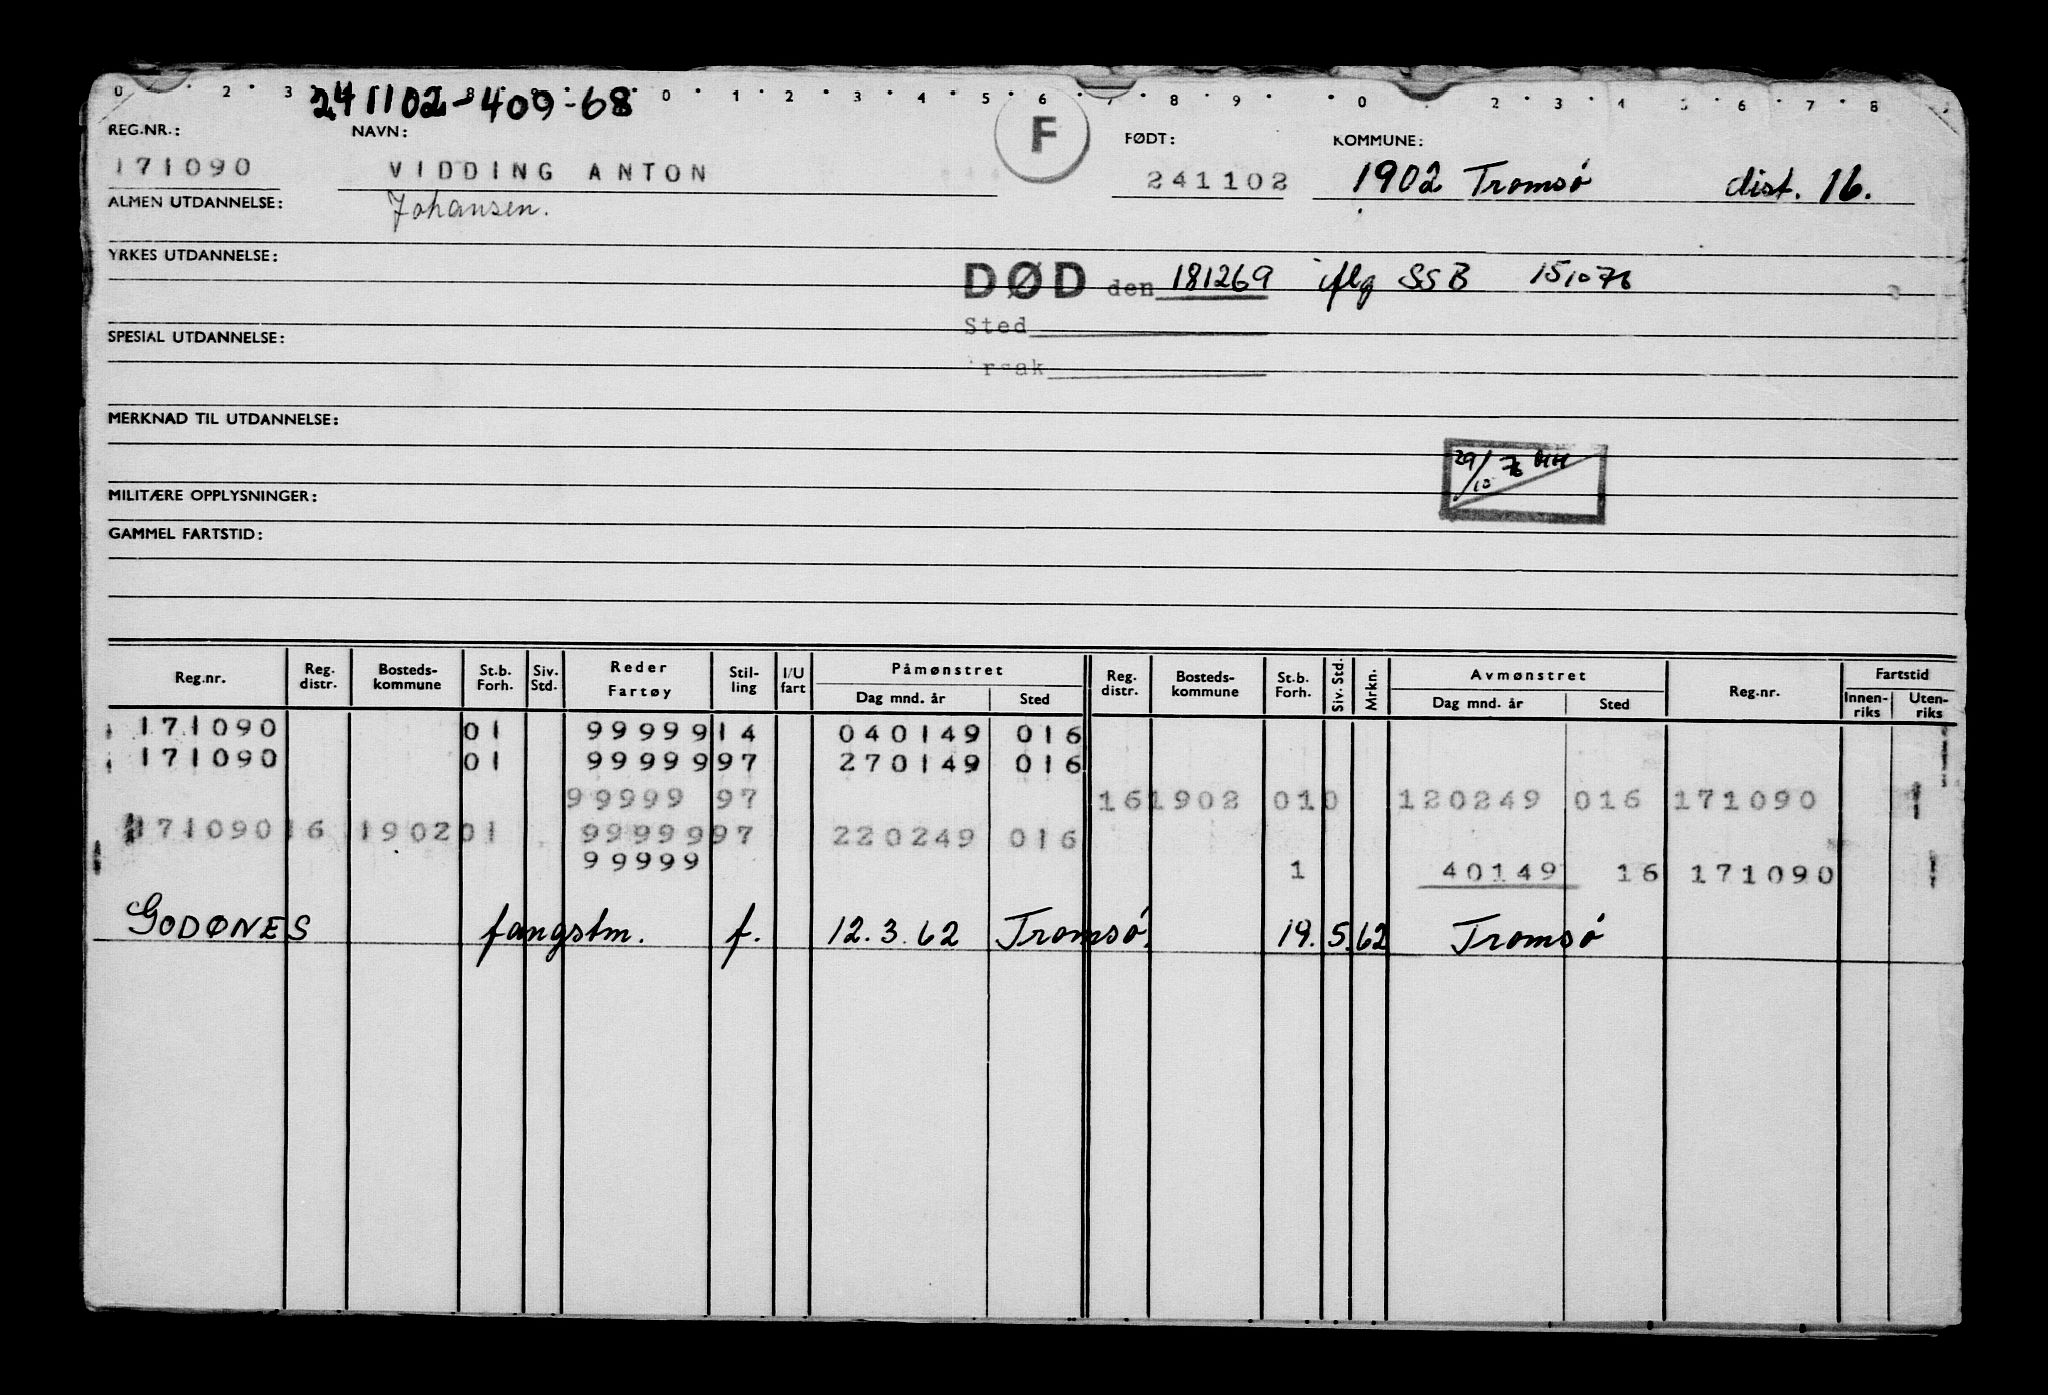 0 2 3 8 0 1 2 3 4 5 6 7 8 9 0 2 3 4 5 6 7 8
241102-409-68
REG.NR.: NAVN: F FØDT: KOMMUNE:
171090 VIDDING ANTON 241102 1902 Tromsø dist. 16.
ALMEN UTDANNELSE: Johansen.
YRKES UTDANNELSE:
DØD den 181269 iflg SSB 151076
Sted
SPESIAL UTDANNELSE:
rsak
MERKNAD TIL UTDANNELSE:
29/10 76
MILITÆRE OPPLYSNINGER:
GAMMEL FARTSTID:
Reg.nr. Reg. distr. Bosteds-kommune St.b. Forh. Siv. Std. Reder Fartøy Stil-ling I/U fart Påmønstret Dag mnd. år Sted Reg. distr. Bosteds-kommune St.b. Forh. Siv. Std. Mrkn. Avmønstret Dag mnd. år Sted Reg.nr. Fartstid Innen-riks Uten-riks
171090 01 99999 14 040149 016
171090 01 99999 97 270149 016
99999 97 16 1902 010 120249 016 171090
171090 16 1902 01 99999 97 220249 016
99999 1 40149 16 171090
GODØNES fangstm. f. 12.3.62 Tromsø. 19.5.62 Tromsø